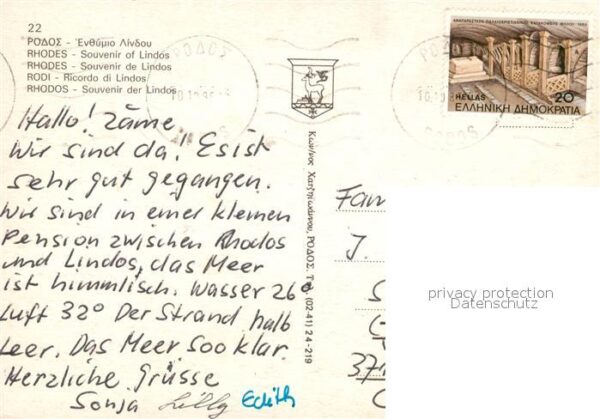 22
ΡΟΔΟΣ - Ἐνθύμιο Λίνδου
RHODES - Souvenir of Lindos
RHODES - Souvenir de Lindos
RODI - Ricordo di Lindos
RHODOS - Souvenir der Lindos
Hallo! Zäme
Wir sind da! Es ist
sehr gut gegangen.
Wir sind in einer kleinen
Pension zwischen Rhodos
und Lindos, das Meer
ist himmlisch. Wasser 26°
Luft 32° Der Strand halb
leer. Das Meer soo klar.
Herzliche Grüsse
Sonja Lilly Edith
Κων/νος Χατζηϊωάννου, ΡΟΔΟΣ, Τηλ. (02-41) 24-219
ΡΟΔΟΣ
ΡΟΔΟΣ
RODOS
HELLAS 20
ΕΛΛΗΝΙΚΗ ΔΗΜΟΚΡΑΤΙΑ
Fam
J.
371
privacy protection
Datenschutz